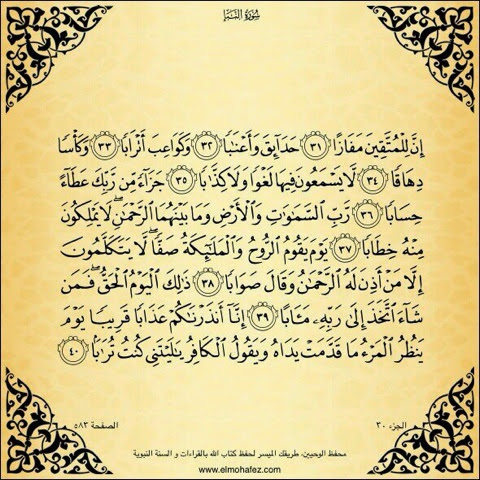 سُورَةُ النَّبَإِ
إِنَّ لِلْمُتَّقِينَ مَفَازًا ٣١ حَدَآئِقَ وَأَعْنَٰبًا ٣٢ وَكَوَاعِبَ أَتْرَابًا ٣٣ وَكَأْسًا
دِهَاقًا ٣٤ لَّا يَسْمَعُونَ فِيهَا لَغْوًا وَلَا كِذَّٰبًا ٣٥ جَزَآءً مِّن رَّبِّكَ عَطَآءً
حِسَابًا ٣٦ رَّبِّ السَّمَٰوَٰتِ وَالْأَرْضِ وَمَا بَيْنَهُمَا الرَّحْمَٰنِ ۖ لَا يَمْلِكُونَ
مِنْهُ خِطَابًا ٣٧ يَوْمَ يَقُومُ الرُّوحُ وَالْمَلَٰٓئِكَةُ صَفًّا ۖ لَّا يَتَكَلَّمُونَ
إِلَّا مَنْ أَذِنَ لَهُ الرَّحْمَٰنُ وَقَالَ صَوَابًا ٣٨ ذَٰلِكَ الْيَوْمُ الْحَقُّ ۖ فَمَن
شَآءَ اتَّخَذَ إِلَىٰ رَبِّهِۦ مَـَٔابًا ٣٩ إِنَّآ أَنذَرْنَٰكُمْ عَذَابًا قَرِيبًا يَوْمَ
يَنظُرُ الْمَرْءُ مَا قَدَّمَتْ يَدَاهُ وَيَقُولُ الْكَافِرُ يَٰلَيْتَنِي كُنتُ تُرَٰبًا ٤٠
الجزء ٣٠ الصفحة ٥٨٣
محفظ الوحيين، طريقك الميسر لحفظ كتاب الله بالقراءات و السنة النبوية
www.elmohafez.com